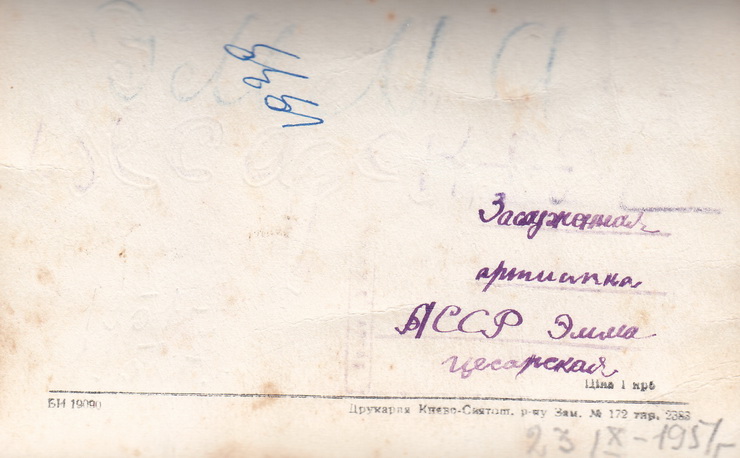 1939
Заслуженная
артистка
АССР Эмма
цесарская
Ціна 1 крб
БН 19090
Друкарня Києво-Святош. р-ну Зам. № 172 тир. 2388
23 IX-1957 г